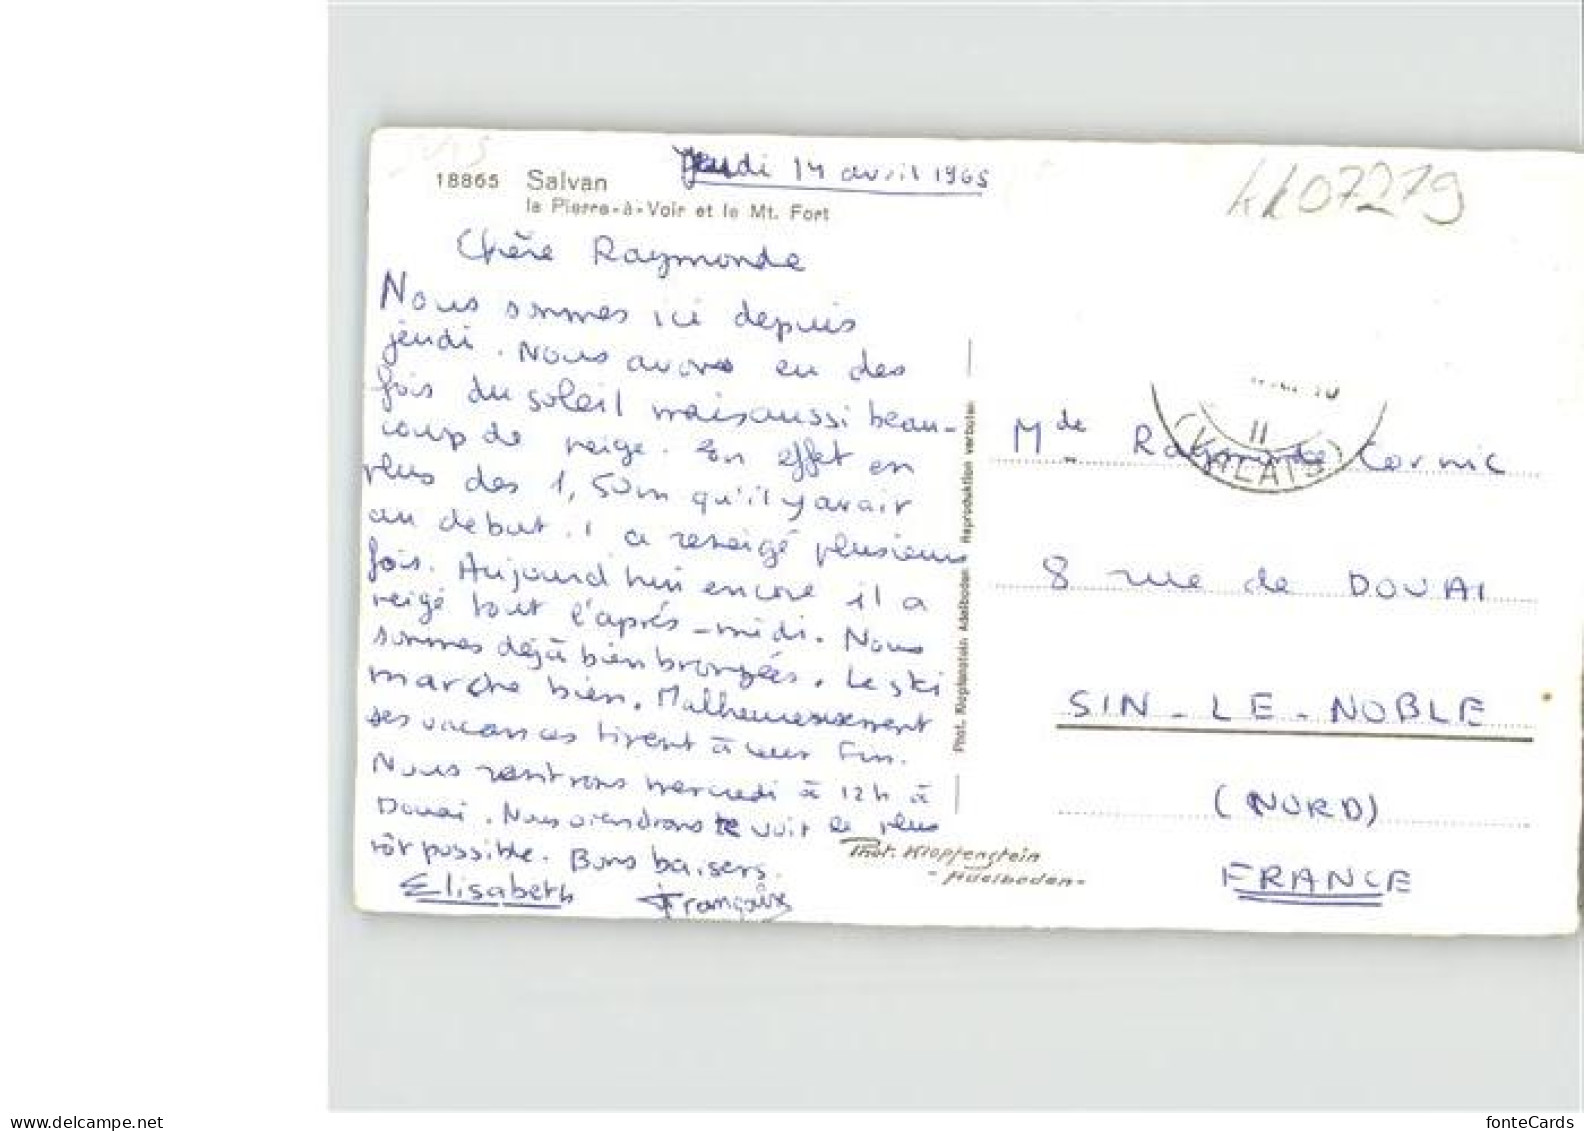 Jeudi 14 avril 1965
18865 Salvan
la Pierre-à-Voir et le Mt. Fort
kk07279
Chère Raymonde
Nous sommes ici depuis
jeudi. Nous avons eu des
fois du soleil mais aussi beau-
coup de neige. En effet en
plus des 1,50m qu'il y avait
au début il a reneigé plusieurs
fois. Aujourd'hui encore il a
neigé tout l'après-midi. Nous
sommes déjà bien bronzées. Le ski
marche bien. Malheureusement
ses vacances tirent à leur fin.
Nous rentrons mercredi à 12h à
Douai. Nous viendrons te voir le plus
tôt possible. Bons baisers.
Elisabeth Françoise
Phot. Klopfenstein, Adelboden Reproduktion verboten
Phot. Klopfenstein
- Adelboden -
11
(VALAIS)
Mde Raymonde Cornic
8 rue de DOUAI
SIN-LE-NOBLE
(NORD)
FRANCE
delcampe.net
fonteCards